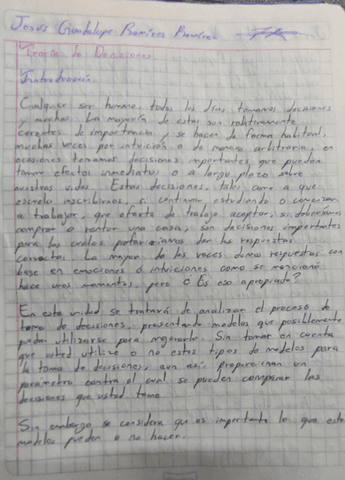 Jesus Guadalupe Ramirez Ramirez
Teoria de Decisiones
Introducción.
Cualquier ser humano, todos los dias tomamos decisiones
y muchas. La mayoria de estas son relativamente
carentes de importancia y se hacen de forma habitual,
muchas veces por intuición o de manera arbitraria, en
ocasiones tenamos decisiones importantes que pueden
tener efectos inmediatos o a largo plazo sobre
nuestras vidas. Estas decisiones, tales como a que
escuela inscribirnos, si continuar estudiando o comenzar
a trabajar, que oferta de trabajo aceptar, si deberiamos
comprar o rentar una casa, son decisiones importantes
para las cuales dar las respuestas
correctas. La mayor de las veces, damos respuestas con
base en emociones o intuiciones como se mencionó
hace unos momentos, pero ¿Es eso apropiado?
En esta unidad se tratará de analizar el proceso de
toma de decisiones, presentando modelos que posiblemente
puedan utilizarse para mejorarlo. Sin tomar en cuenta
que usted utilize o no estos tipos de modelos para
la toma de decisiones, aun asi, proporcionan un
parametro contra el cual se pueden comparar las
decisiones que usted toma.
Sin embargo se considera que es importante lo que estos
modelos pueden o no hacer.